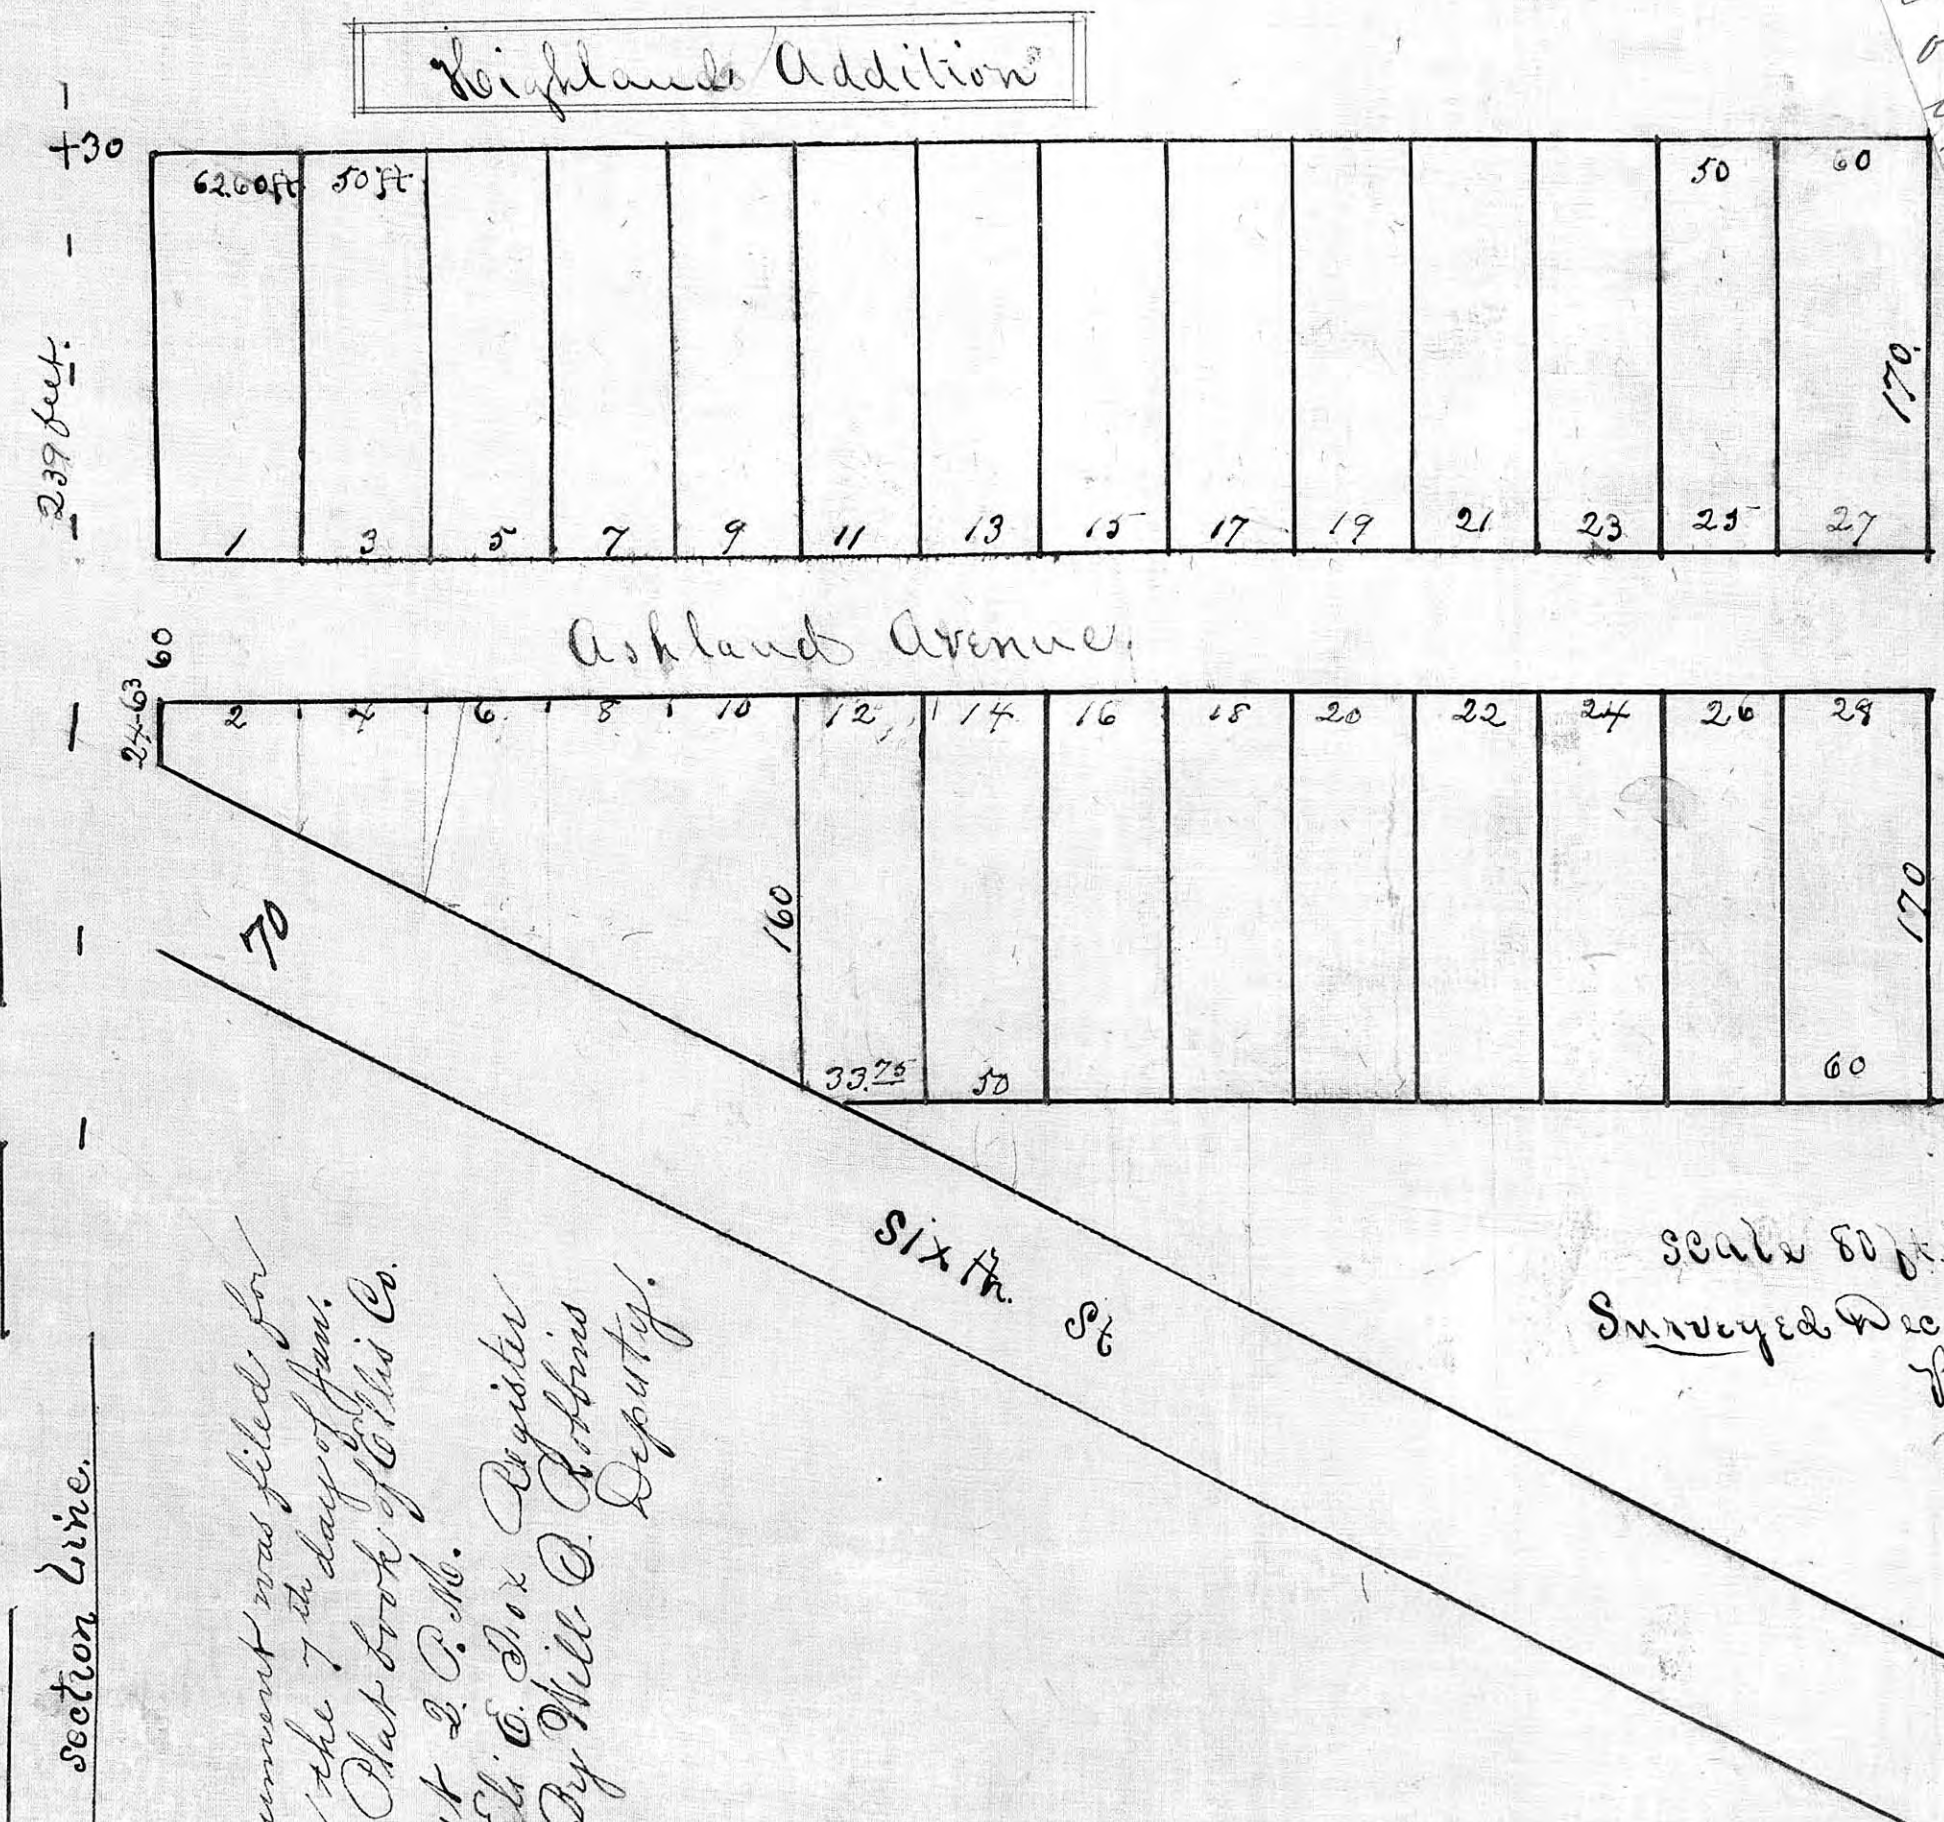 Highland Addition
+30
62.60ft 50ft 50 60
239 feet.
170.
1 3 5 7 9 11 13 15 17 19 21 23 25 27
Ashland Avenue.
60
24.63
2 4 6 8 10 12 14 16 18 20 22 24 26 28
70
160
170
33.75 50 60
Sixth. St
scale 80 ft.
Surveyed Dec
section Line.
was filed for
the 7th day of Jan.
Plat book of Ellis Co.
2. P. M.
Eli E. Fox Register
By Will B. Robbins
Deputy.